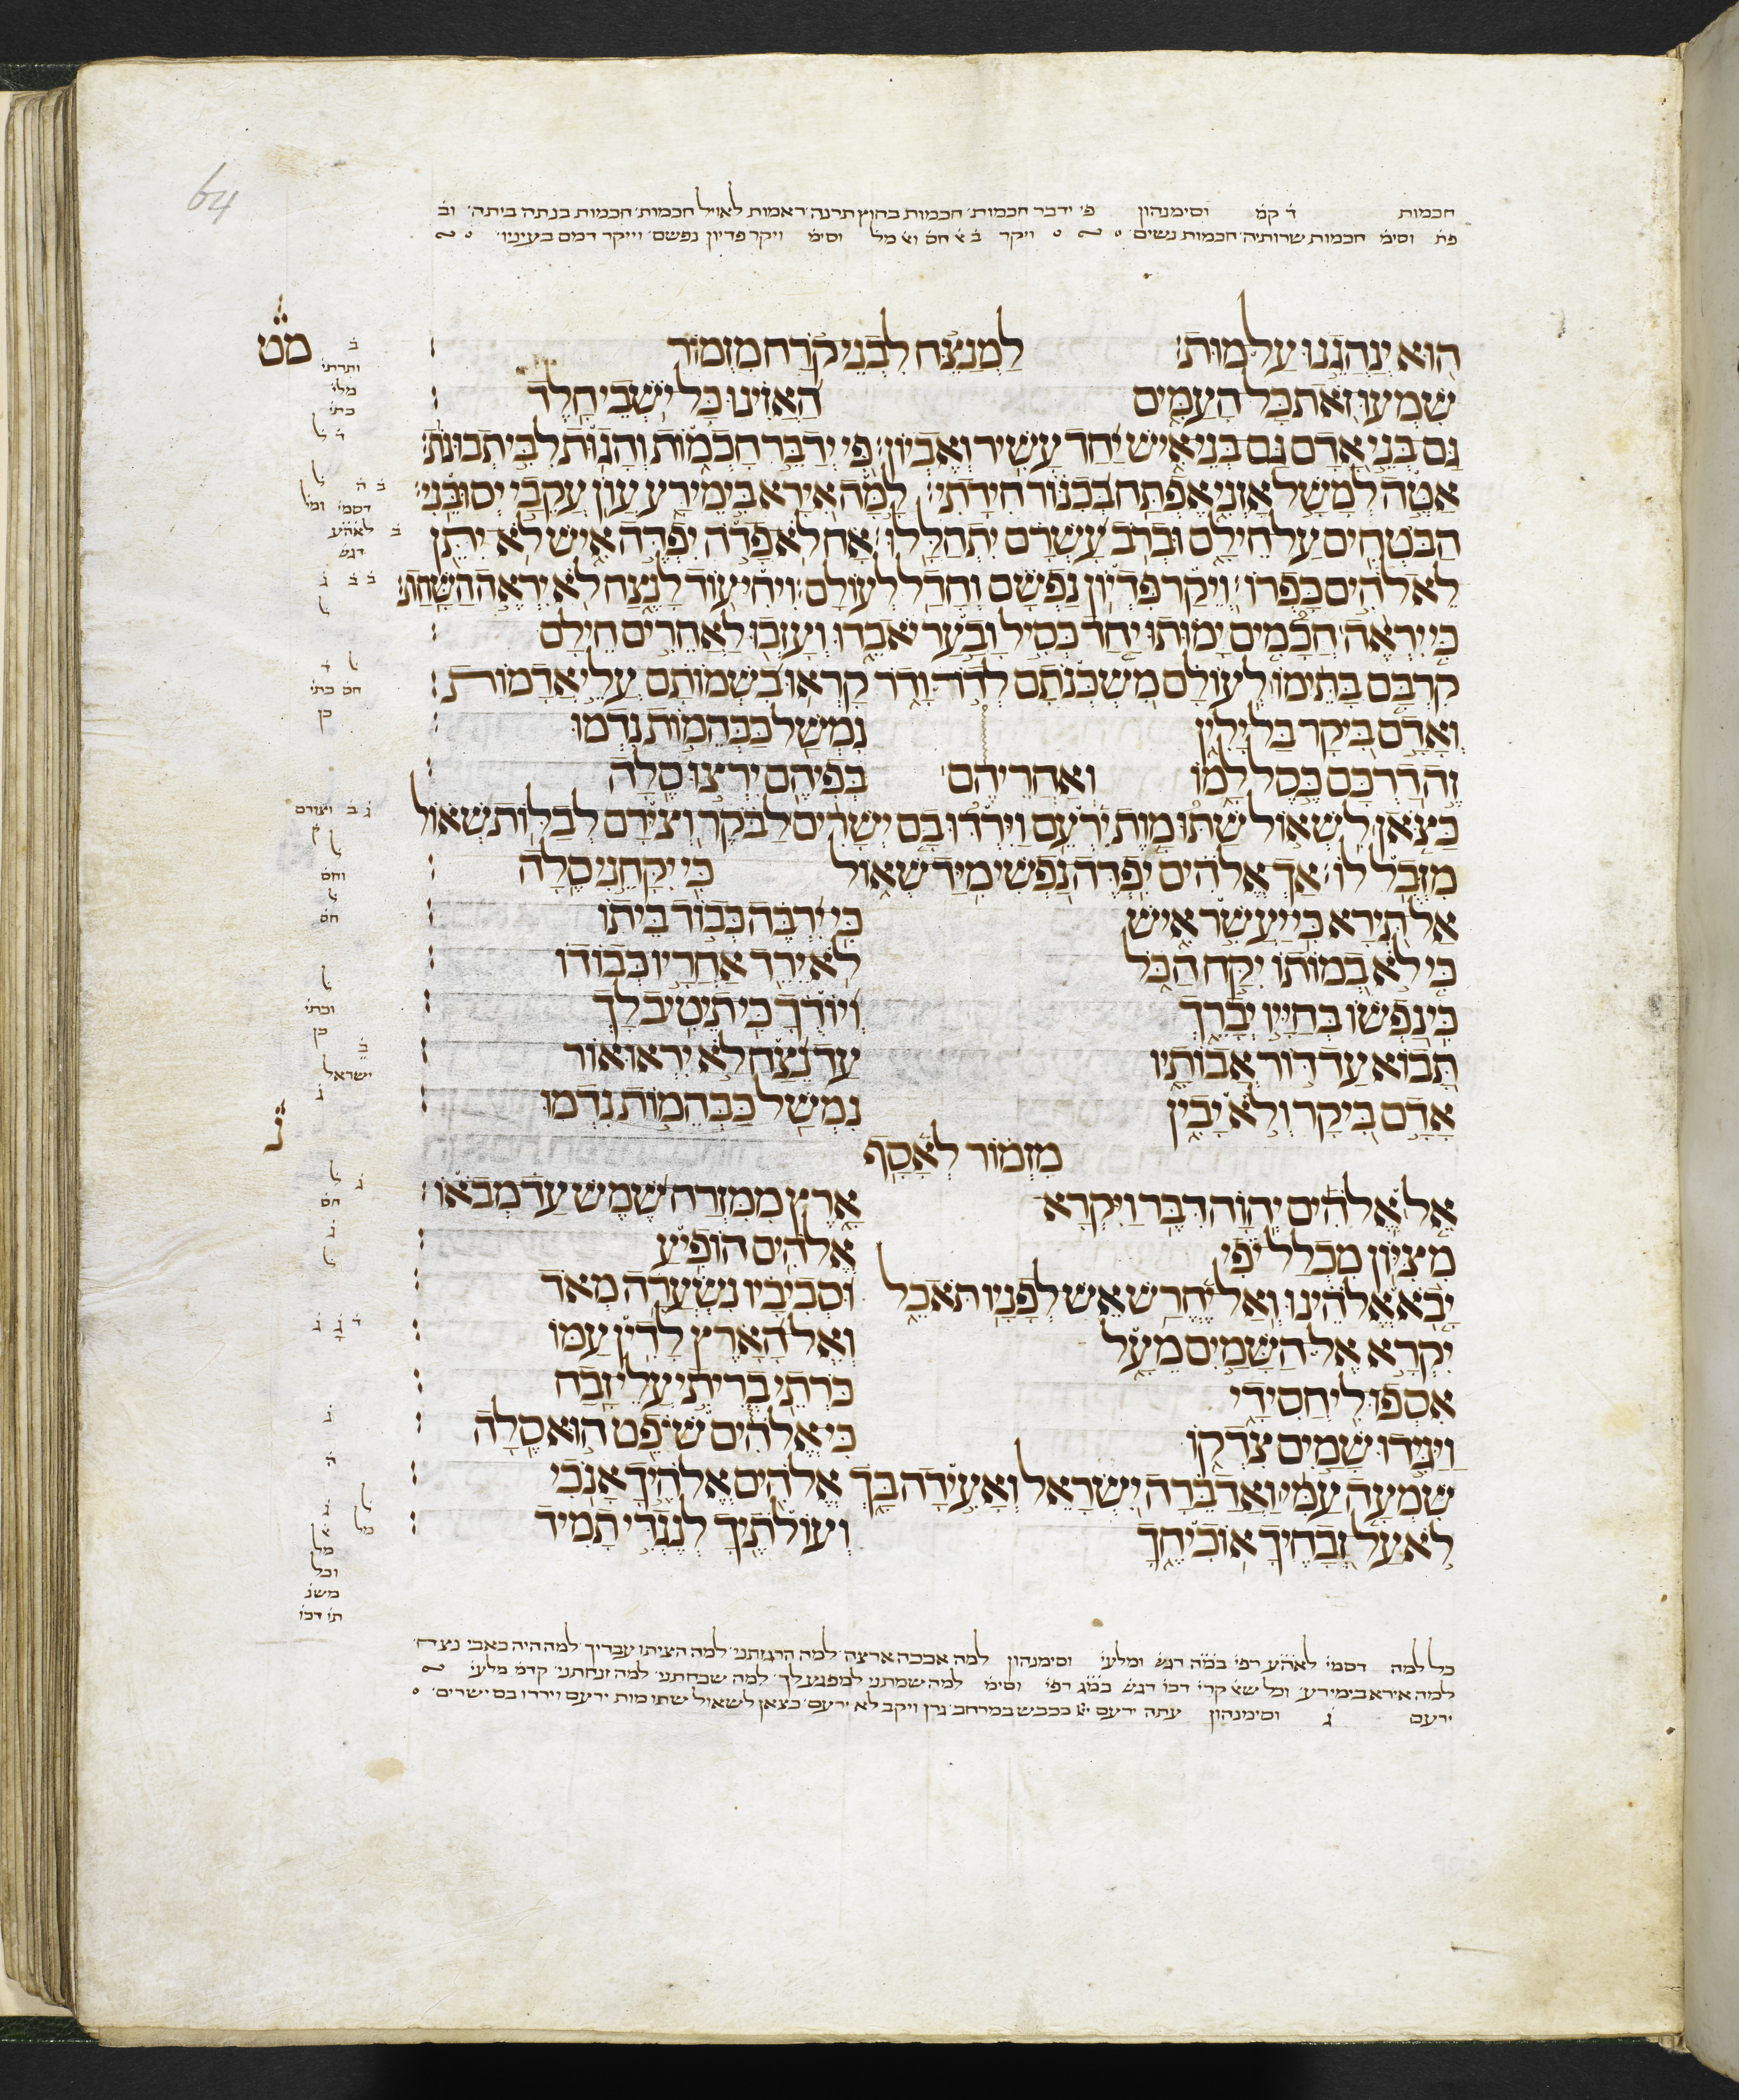 64
חכמות ד קמ וסימנהון פי ידבר חכמות חכמות בחוץ תרנה ראמות לאויל חכמות חכמות בנתה ביתה וב
פת וסימ חכמות שרותיה חכמות נשים ויקר ב חס וסימ ויקר פדיון נפשם וייקר דמם בעיניו
הוּא יְנַהֲגֵנוּ עַל־מוּת׃ לַמְנַצֵּחַ לִבְנֵי קֹרַח מִזְמוֹר
מט
שִׁמְעוּ זֹאת כָּל הָעַמִּים הַאֲזִינוּ כָּל יֹשְׁבֵי חָלֶד׃
גַּם בְּנֵי אָדָם גַּם בְּנֵי אִישׁ יַחַד עָשִׁיר וְאֶבְיוֹן׃ פִּי יְדַבֵּר חָכְמוֹת וְהָגוּת לִבִּי תְבוּנוֹת׃
אַטֶּה לְמָשָׁל אָזְנִי אֶפְתַּח בְּכִנּוֹר חִידָתִי׃ לָמָּה אִירָא בִּימֵי רָע עֲוֹן עֲקֵבַי יְסוּבֵּנִי׃
הַבֹּטְחִים עַל חֵילָם וּבְרֹב עָשְׁרָם יִתְהַלָּלוּ׃ אָח לֹא פָדֹה יִפְדֶּה אִישׁ לֹא יִתֵּן
לֵאלֹהִים כָּפְרוֹ׃ וְיֵקַר פִּדְיוֹן נַפְשָׁם וְחָדַל לְעוֹלָם׃ וִיחִי עוֹד לָנֶצַח לֹא יִרְאֶה הַשָּׁחַת׃
כִּי יִרְאֶה חֲכָמִים יָמוּתוּ יַחַד כְּסִיל וָבַעַר יֹאבֵדוּ וְעָזְבוּ לַאֲחֵרִים חֵילָם׃
קִרְבָּם בָּתֵּימוֹ לְעוֹלָם מִשְׁכְּנֹתָם לְדֹר וָדֹר קָרְאוּ בִשְׁמוֹתָם עֲלֵי אֲדָמוֹת׃
וְאָדָם בִּיקָר בַּל יָלִין נִמְשַׁל כַּבְּהֵמוֹת נִדְמוּ׃
זֶה דַרְכָּם כֵּסֶל לָמוֹ וְאַחֲרֵיהֶם בְּפִיהֶם יִרְצוּ סֶלָה׃
כַּצֹּאן לִשְׁאוֹל שַׁתּוּ מָוֶת יִרְעֵם וַיִּרְדּוּ בָם יְשָׁרִים לַבֹּקֶר וְצִירָם לְבַלּוֹת שְׁאוֹל
מִזְּבֻל לוֹ׃ אַךְ אֱלֹהִים יִפְדֶּה נַפְשִׁי מִיַּד שְׁאוֹל כִּי יִקָּחֵנִי סֶלָה׃
אַל תִּירָא כִּי יַעֲשִׁר אִישׁ כִּי יִרְבֶּה כְּבוֹד בֵּיתוֹ׃
כִּי לֹא בְמוֹתוֹ יִקַּח הַכֹּל לֹא יֵרֵד אַחֲרָיו כְּבוֹדוֹ׃
כִּי נַפְשׁוֹ בְּחַיָּיו יְבָרֵךְ וְיוֹדֻךָ כִּי תֵיטִיב לָךְ׃
תָּבוֹא עַד דּוֹר אֲבוֹתָיו עַד נֵצַח לֹא יִרְאוּ אוֹר׃
אָדָם בִּיקָר וְלֹא יָבִין נִמְשַׁל כַּבְּהֵמוֹת נִדְמוּ׃
נ
מִזְמוֹר לְאָסָף
אֵל אֱלֹהִים יְהוָה דִּבֶּר וַיִּקְרָא אָרֶץ מִמִּזְרַח שֶׁמֶשׁ עַד מְבֹאוֹ׃
מִצִּיּוֹן מִכְלַל יֹפִי אֱלֹהִים הוֹפִיעַ׃
יָבֹא אֱלֹהֵינוּ וְאַל יֶחֱרַשׁ אֵשׁ לְפָנָיו תֹּאכֵל וּסְבִיבָיו נִשְׂעֲרָה מְאֹד׃
יִקְרָא אֶל הַשָּׁמַיִם מֵעָל וְאֶל הָאָרֶץ לָדִין עַמּוֹ׃
אִסְפוּ לִי חֲסִידָי כֹּרְתֵי בְרִיתִי עֲלֵי זָבַח׃
וַיַּגִּידוּ שָׁמַיִם צִדְקוֹ כִּי אֱלֹהִים שֹׁפֵט הוּא סֶלָה׃
שִׁמְעָה עַמִּי וַאֲדַבֵּרָה יִשְׂרָאֵל וְאָעִידָה בָּךְ אֱלֹהִים אֱלֹהֶיךָ אָנֹכִי׃
לֹא עַל זְבָחֶיךָ אוֹכִיחֶךָ וְעוֹלֹתֶיךָ לְנֶגְדִּי תָמִיד׃
כל למה דסמי לאהע רפי במה דגש ומלעי וסימנהון למה אבכה ארצה למה הרגזתני למה הציתו עבדיך למה היה כאבי נצח
למה אירא בימי רע וכל שא קרי דכו דגש במג רפי וסימ למה שמתני למפגע לך למה שכחתני למה זנחתני קדמ מלעי
ירעם ג וסימנהון עתה ירעם יי ככבש במרחב גרן ויקב לא ירעם כצאן לשאול שתו מות ירעם וירדו בם ישרים